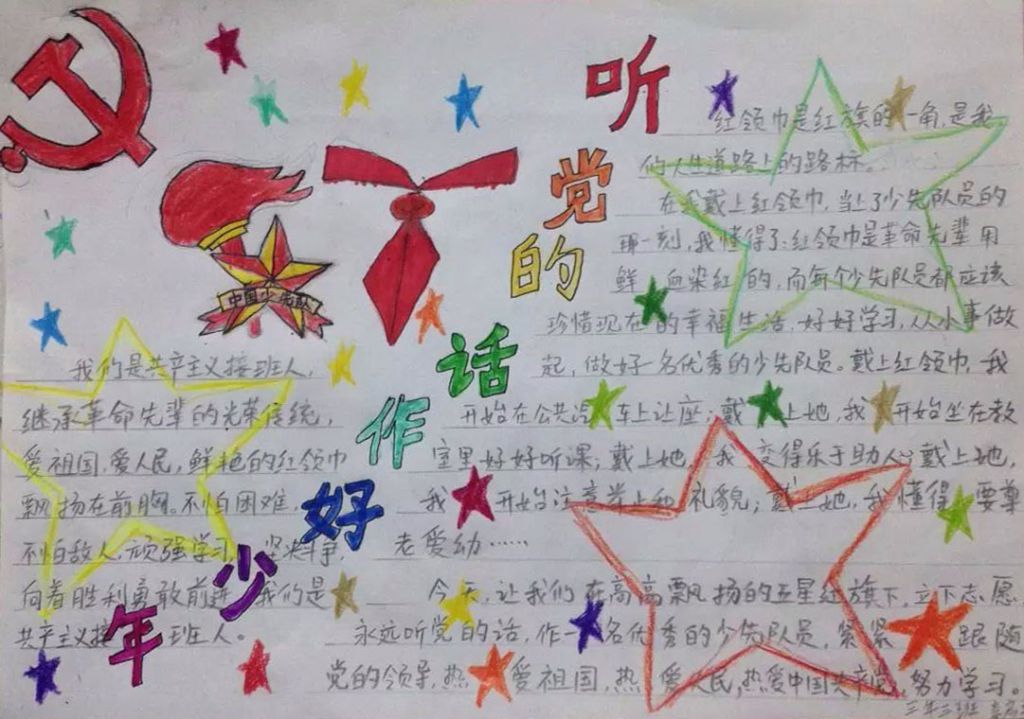 听党的话作好少年
中国少先队
我们是共产主义接班人,
继承革命先辈的光荣传统,
爱祖国,爱人民,鲜艳的红领巾
飘扬在前胸。不怕困难,
不怕敌人,顽强学习,坚决斗争,
向着胜利勇敢前进,我们是
共产主义接班人。
红领巾是红旗的一角,是我
们人生道路上的路标。
在我戴上红领巾,当上了少先队员的
那一刻,我懂得了:红领巾是革命先辈用
鲜血染红的,而每个少先队员都应该
珍惜现在的幸福生活,好好学习,从小事做
起,做好一名优秀的少先队员。戴上红领巾,我
开始在公共汽车上让座;戴上她,我开始坐在教
室里好好听课;戴上她,我变得乐于助人;戴上她,
我开始注意举止和礼貌;戴上她,我懂得要尊
老爱幼……
今天,让我们在高高飘扬的五星红旗下,立下志愿
永远听党的话,作一名优秀的少先队员,紧紧跟随
党的领导,热爱祖国,热爱人民,热爱中国共产党,努力学习。
三年三班